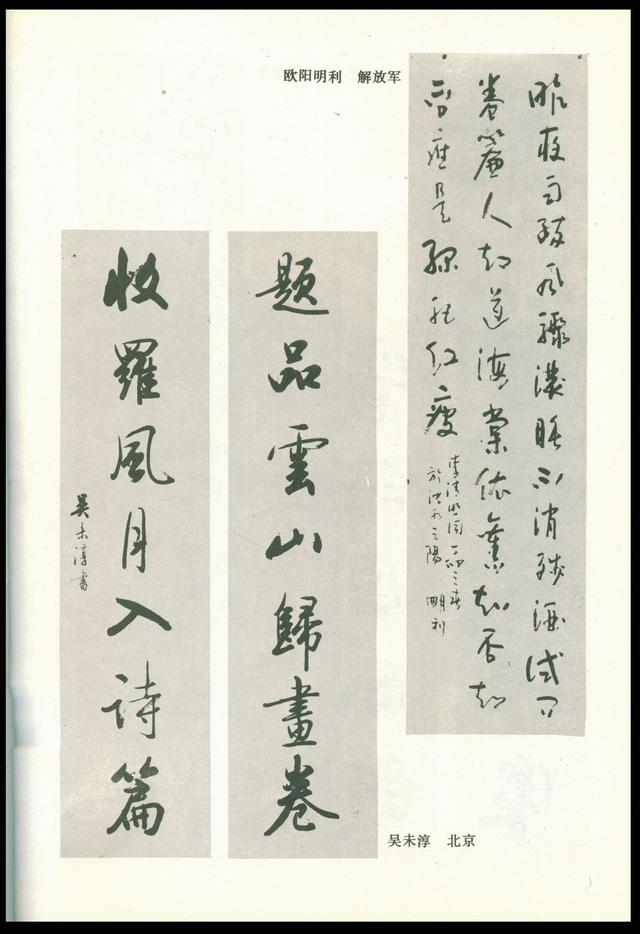 欧阳明利　解放军
昨夜雨疏风骤浓睡不消残酒试问
卷簾人却道海棠依舊知否知
否應是绿肥红瘦
李清照词一首
明利
題品雲山歸畫卷
收羅風月入詩篇
吴未淳書
吴未淳　北京